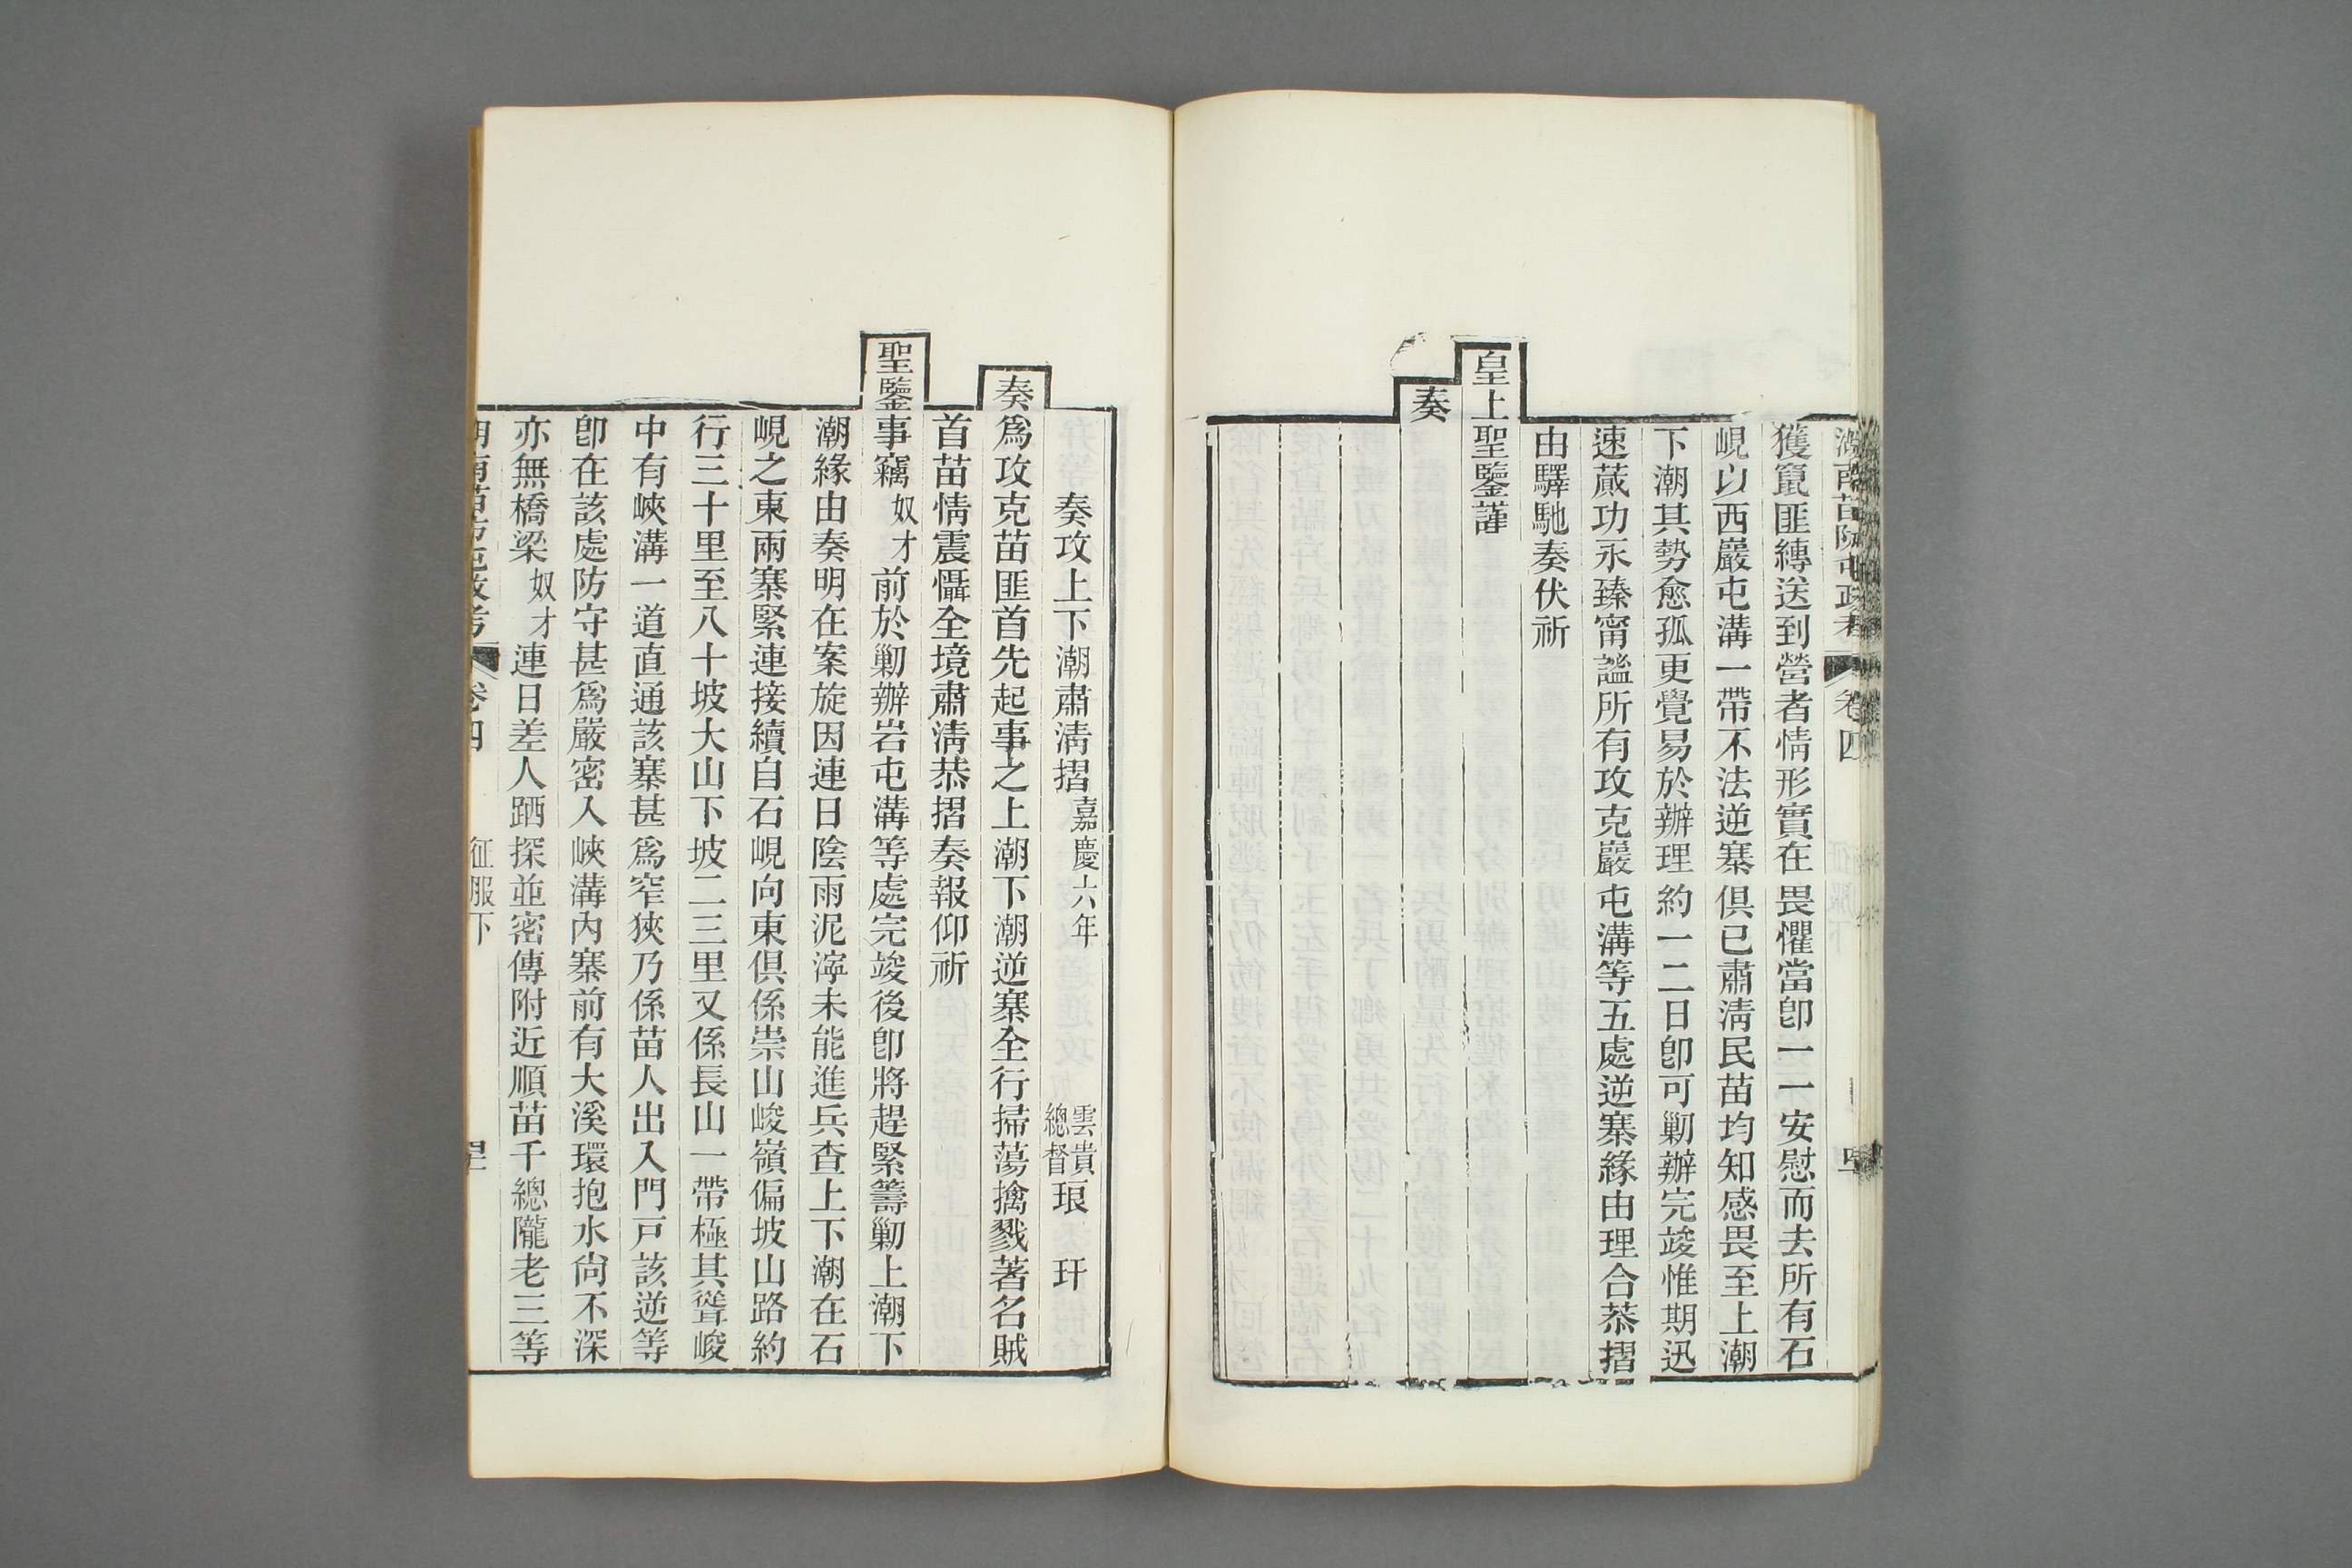 湖南苗防屯政考 卷四 征服下
獲竄匪縛送到營者情形實在畏懼當卽一一安慰而去所有石
峴以西巖屯溝一帶不法逆寨俱已肅淸民苗均知感畏至上潮
下潮其勢愈孤更覺易於辦理約一二日卽可剿辦完竣惟期迅
速蕆功永臻甯謐所有攻克巖屯溝等五處逆寨緣由理合恭摺
由驛馳奏伏祈
皇上聖鑒謹
奏
奏攻上下潮肅淸摺 嘉慶六年 雲貴總督 琅玕
奏爲攻克苗匪首先起事之上潮下潮逆寨全行掃蕩擒戮著名賊
首苗情震懾全境肅淸恭摺奏報仰祈
聖鑒事竊奴才前於剿辦岩屯溝等處完竣後卽將趕緊籌剿上潮下
潮緣由奏明在案旋因連日陰雨泥濘未能進兵查上下潮在石
峴之東兩寨緊連接續自石峴向東俱係崇山峻嶺偏坡山路約
行三十里至八十坡大山下坡二三里又係長山一帶極其聳峻
中有峽溝一道直通該寨甚爲窄狹乃係苗人出入門戸該逆等
卽在該處防守甚爲嚴密入峽溝內寨前有大溪環抱水尙不深
亦無橋梁奴才連日差人跴探並密傳附近順苗千總隴老三等
湖南苗防屯政考 卷四 征服下